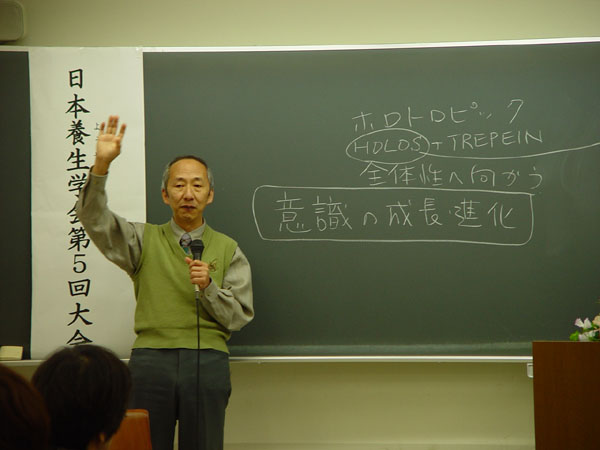 日本養生学会第5回大会
ホロトロピック
HOLOS+TREPEIN
全体性へ向かう
意識の成長進化